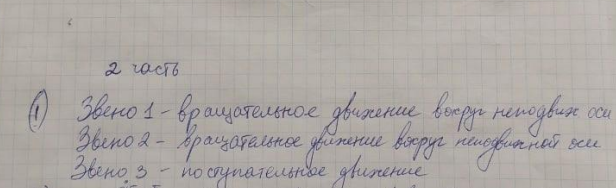 2 часть
① Звено 1 - вращательное движение вокруг неподвиж оси
Звено 2 - вращательное движение вокруг неподвижной оси
Звено 3 - поступательное движение